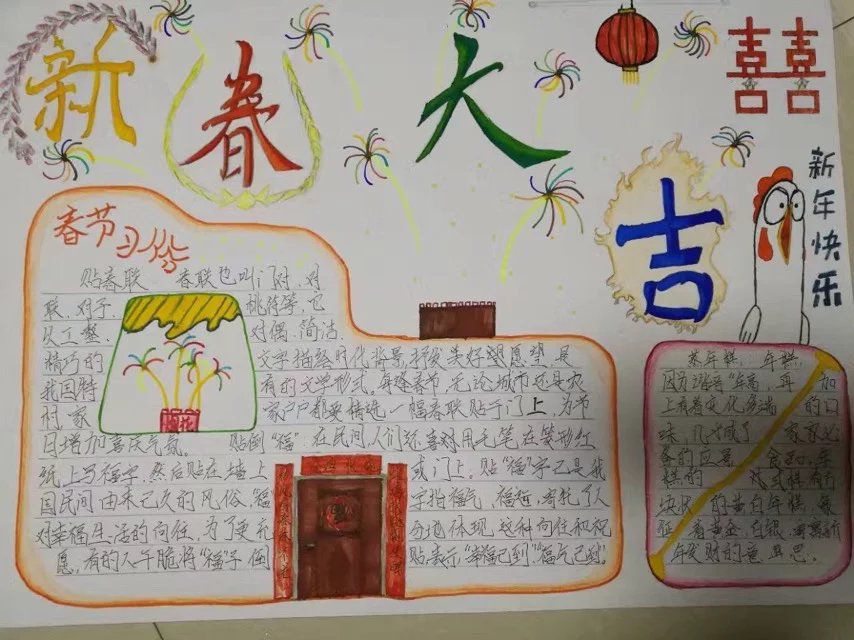 新春大吉
囍
新年快乐
春节习俗
贴春联 春联也叫门对、对
联、对子、桃符等,它
以工整、对偶、简洁、
精巧的文字描绘时代背景,抒发美好愿望,是
我国特有的文学形式。每逢春节,无论城市还是农
村,家家户户都要精选一幅春联贴于门上,为节
日增加喜庆气氛。 贴倒“福”,在民间人们还喜对用毛笔在菱形红
纸上写福字,然后贴在墙上或门上。贴“福”字已是我
国民间由来已久的风俗,“福”字指福气、福运,寄托了人
对幸福生活的向往,为了更充分地体现这种向往和祝
愿,有的人干脆将“福”字倒贴,表示“幸福已到”“福气已到”。
蒸年糕 年糕
因为谐音“年高”,再加
上有着变化多端的口
味,几乎成了家家必
备的应景食品,年
糕的 式样有方
块状的黄白年糕,象
征着黄金、白银,寓意新
年发财的意思。